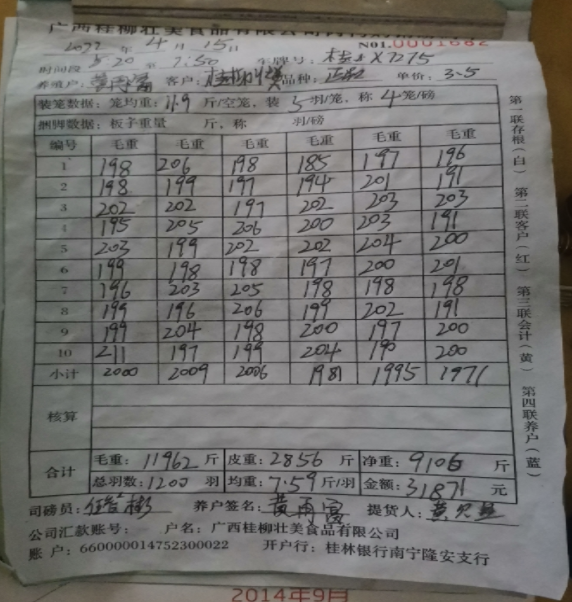 广西桂柳壮美食品有限公司
2022 年 4 月 15 日 NO1.0001682
时间段 3:20 至 7:50 车牌号: 桂 X7275
养殖户: 黄雨富 客户: 桂柳壮美 品种: 单价: 3.5
装笼数据: 笼均重: 11.9 斤/空笼, 装 5 羽/笼, 称 4 笼/磅
捆脚数据: 板子重量 斤, 称 羽/磅
编号 毛重 毛重 毛重 毛重 毛重 毛重
1 198 206 198 185 197 196
2 198 199 197 194 201 191
3 202 202 197 202 203 203
4 195 205 206 200 203 191
5 203 199 202 202 204 200
6 199 198 198 197 200 201
7 196 203 205 198 198 198
8 199 196 206 199 202 191
9 199 204 198 200 197 200
10 211 197 199 204 190 200
小计 2000 2009 2006 1981 1995 1971
核算
合计 毛重: 11962 斤 皮重: 2856 斤 净重: 9106 斤
总羽数: 1200 羽 均重: 7.59 斤/羽 金额: 31871 元
司磅员: 养户签名: 黄雨富 提货人: 黄
公司汇款账号: 户名: 广西桂柳壮美食品有限公司
账 户: 660000014752300022 开户行: 桂林银行南宁隆安支行
第一联存根(白) 第二联客户(红) 第三联会计(黄) 第四联养户(蓝)
2014年9月